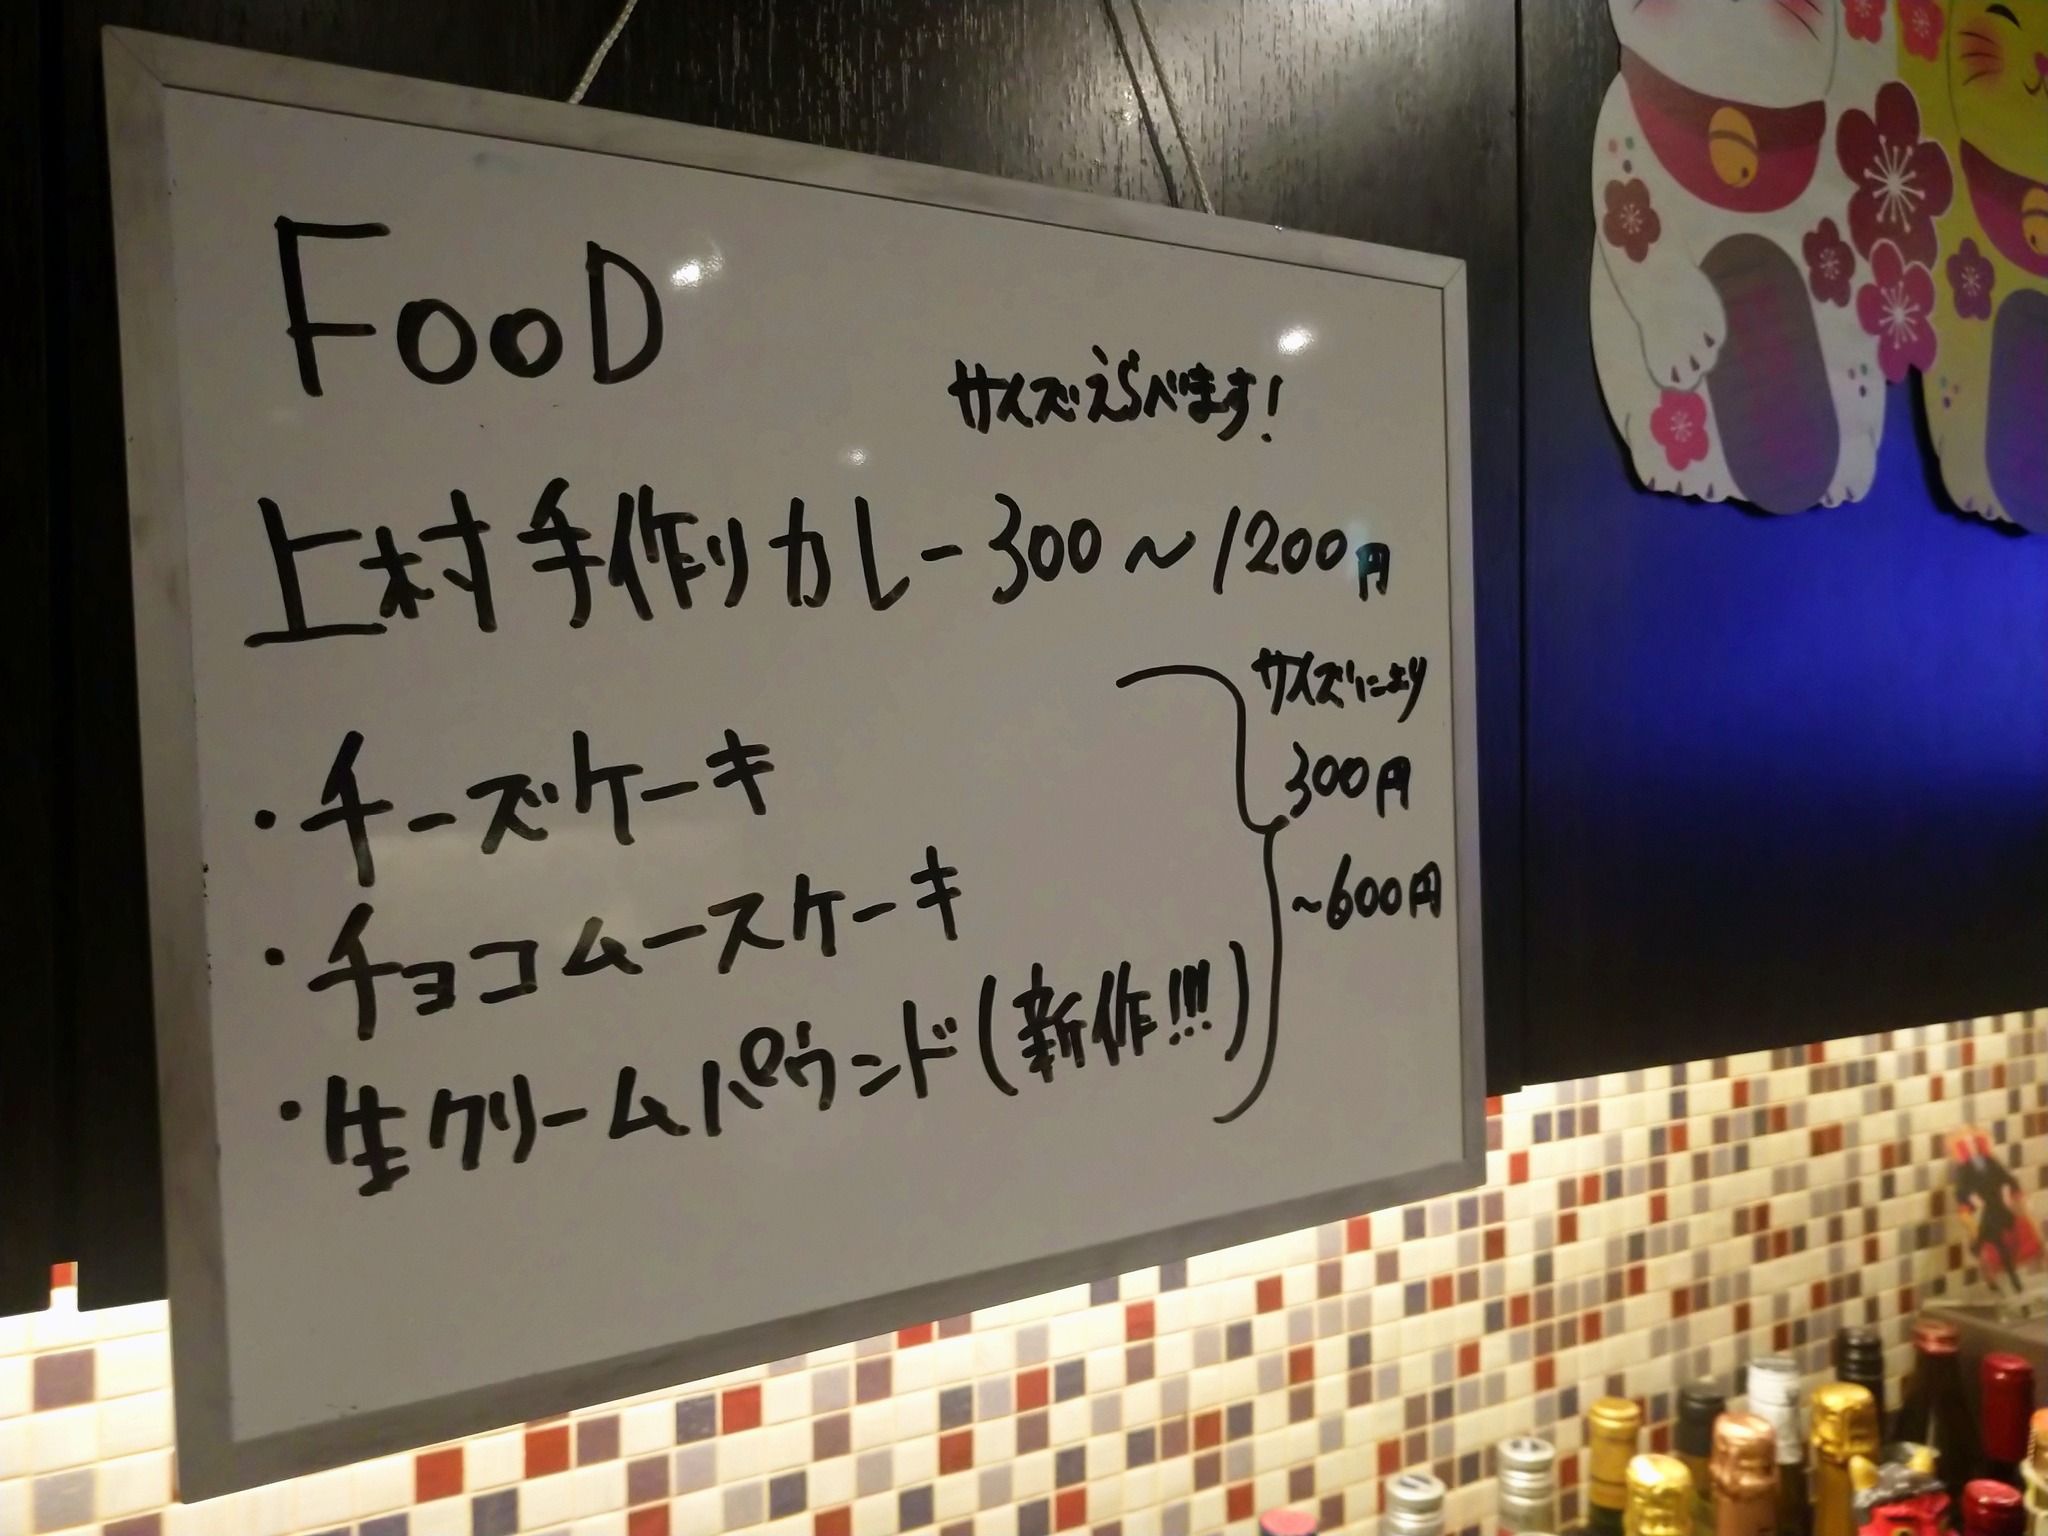 FOOD
サイズえらべます!
上村手作りカレー300～1200円
サイズにより
300円
～600円
・チーズケーキ
・チョコムースケーキ
・生クリームパウンド(新作!!!)